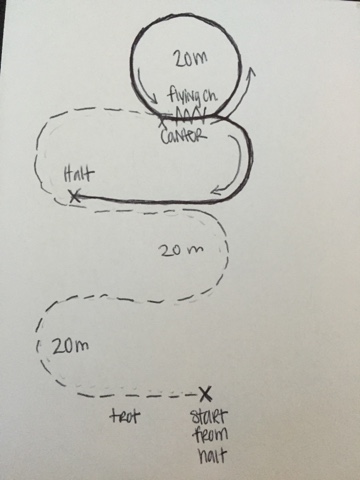 20m
flying ch
Canter
Halt
20 m
20m
trot
start
from
halt